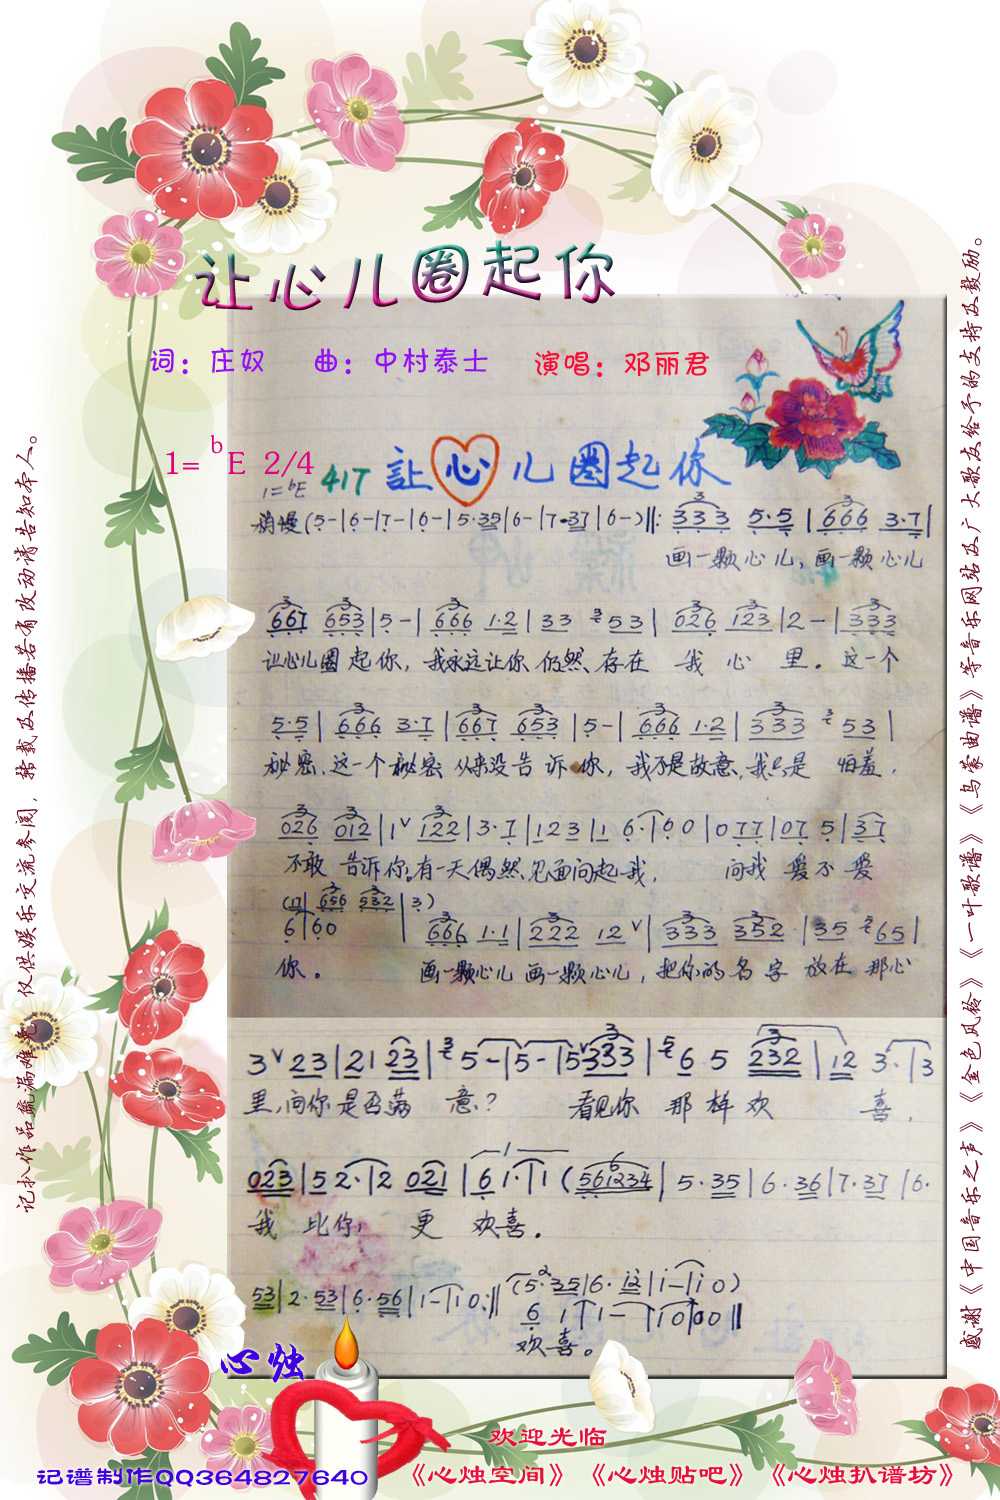 让心儿圈起你
词：庄奴 曲：中村泰士 演唱：邓丽君
1= ᵇE 2/4
1=ᵇE 417 讓心儿圈起你
稍慢 (5-|6-|7-|6-|5·35|6-|7·37|6-)‖: 333 5·5 |666 3·7|
画一颗心儿, 画一颗心儿
667 653|5-|666 1·2|33 53|026 123|2-|333
让心儿圈起你, 我永远让你仍然存在 我心里。这一个
5·5|666 3·7|667 653|5-|666 1·2|333 53|
秘密, 这一个秘密 从来没告诉你, 我不是故意, 我只是 怕羞,
026 012|1ˇ122|3·7|123|1 6·|60|077|07 5|37
不敢 告诉你。有一天偶然, 见面问起我, 问我 爱不爱
656 532 |3)
6|60 | 666 1·1|222 12ˇ|333 352·|35 65|
你。 画一颗心儿 画一颗心儿, 把你的名字 放在 那心
3ˇ23|21 23|5-|5-|5ˇ333|6·5 232|12 3·|3
里, 问你是否满 意? 看见你 那样欢 喜,
023|52·|2 021|6 1·|1 (561234|5·35|6·36|7·37|6·
我 比你, 更 欢喜。
53|2·53|6·56|1-|10:‖ (5·35|6·12|1-|10)
6 1|1-|10|00‖
欢喜。
心烛
欢迎光临
记谱制作QQ364827640 《心烛空间》《心烛贴吧》《心烛扒谱坊》
记扒作品疏漏难免，仅供娱乐交流参阅，转载及传播若有改动请告知本人。
感谢《中国音乐之声》《金色风铃》《一叶歌谱》《乌蒙曲谱》等音乐网站及广大歌友给予的支持及鼓励。